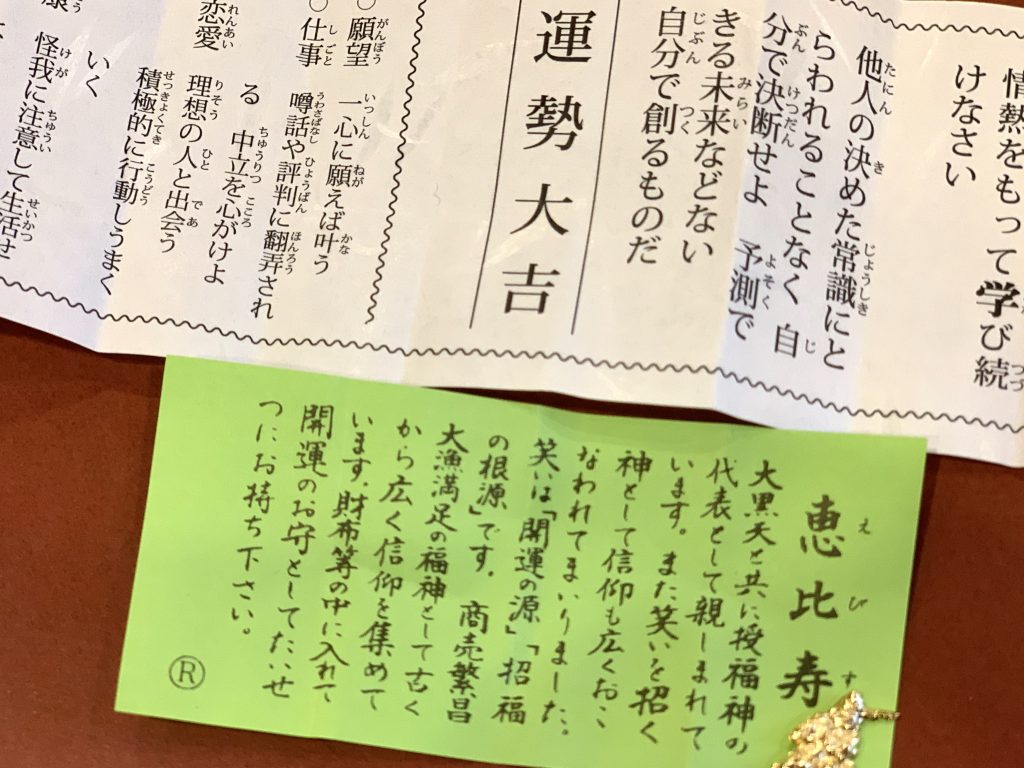 情熱をもって学び続
けなさい
他人の決めた常識にと
らわれることなく 自
分で決断せよ 予測で
きる未来などない
自分で創るものだ
運勢大吉
○願望 一心に願えば叶う
○仕事 噂話や評判に翻弄され
る 中立を心がけよ
恋愛 理想の人と出会う
積極的に行動しうまく
いく
康 怪我に注意して生活せ
恵比寿
大黒天と共に授福神の
代表として親しまれて
います。また笑いを招く
神として信仰も広くおこ
なわれてまいりました。
笑いは「開運の源」「招福
の根源」です。商売繁昌
大漁満足の福神として古く
から広く信仰を集めて
います。財布等の中に入れて
開運のお守としてたいせ
つにお持ち下さい。
Ⓡ